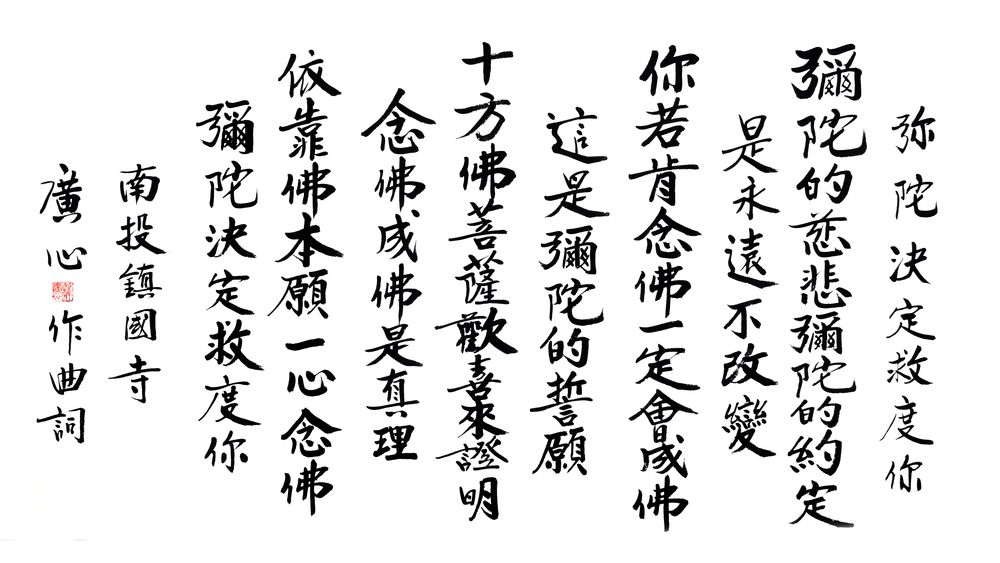 弥陀決定救度你
彌陀的慈悲彌陀的約定
是永遠不改變
你若肯念佛一定會成佛
這是彌陀的誓願
十方佛菩薩歡喜來證明
念佛成佛是真理
依靠佛本願一心念佛
彌陀決定救度你
南投鎮國寺
廣心作曲詞